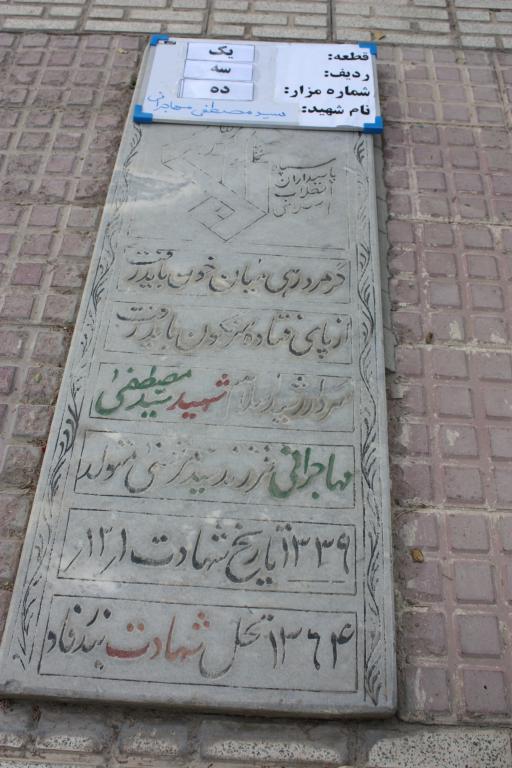 قطعه: یک
ردیف: سه
شماره مزار: ده
نام شهید: سید مصطفی مهاجرانی
سپاه
پاسداران
انقلاب
اسلامی
گر مرد رهی میان خون باید رفت
از پای فتاده سرنگون باید رفت
سردار رشید اسلام شهید سید مصطفی
مهاجرانی فرزند سید مرتضی متولد
۱۳۳۹ تاریخ شهادت ۱ر۱۲ر
۱۳۶۴ محل شهادت